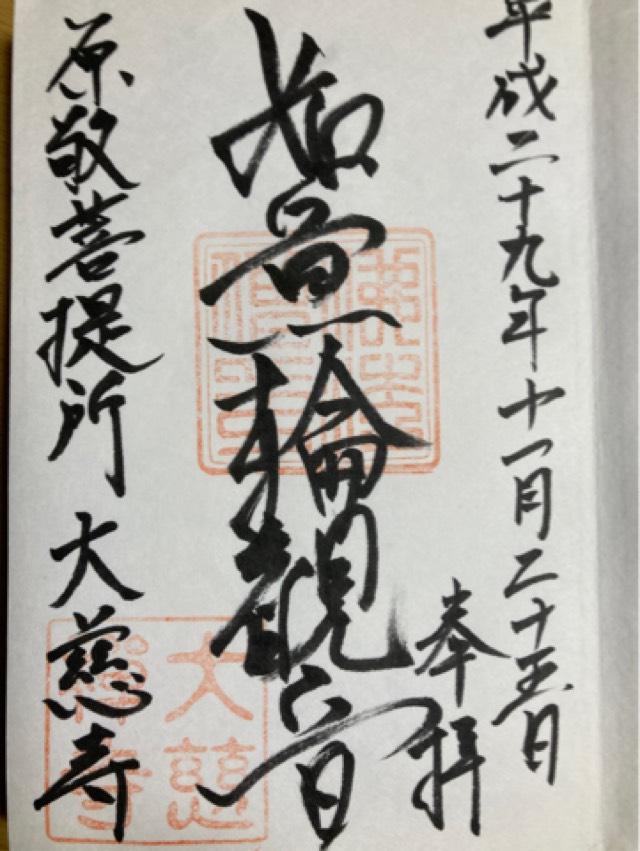 平成二十九年十一月二十五日
奉拝
如意輪観音
原敬菩提所 大慈寺
佛法僧寶
大慈禅寺